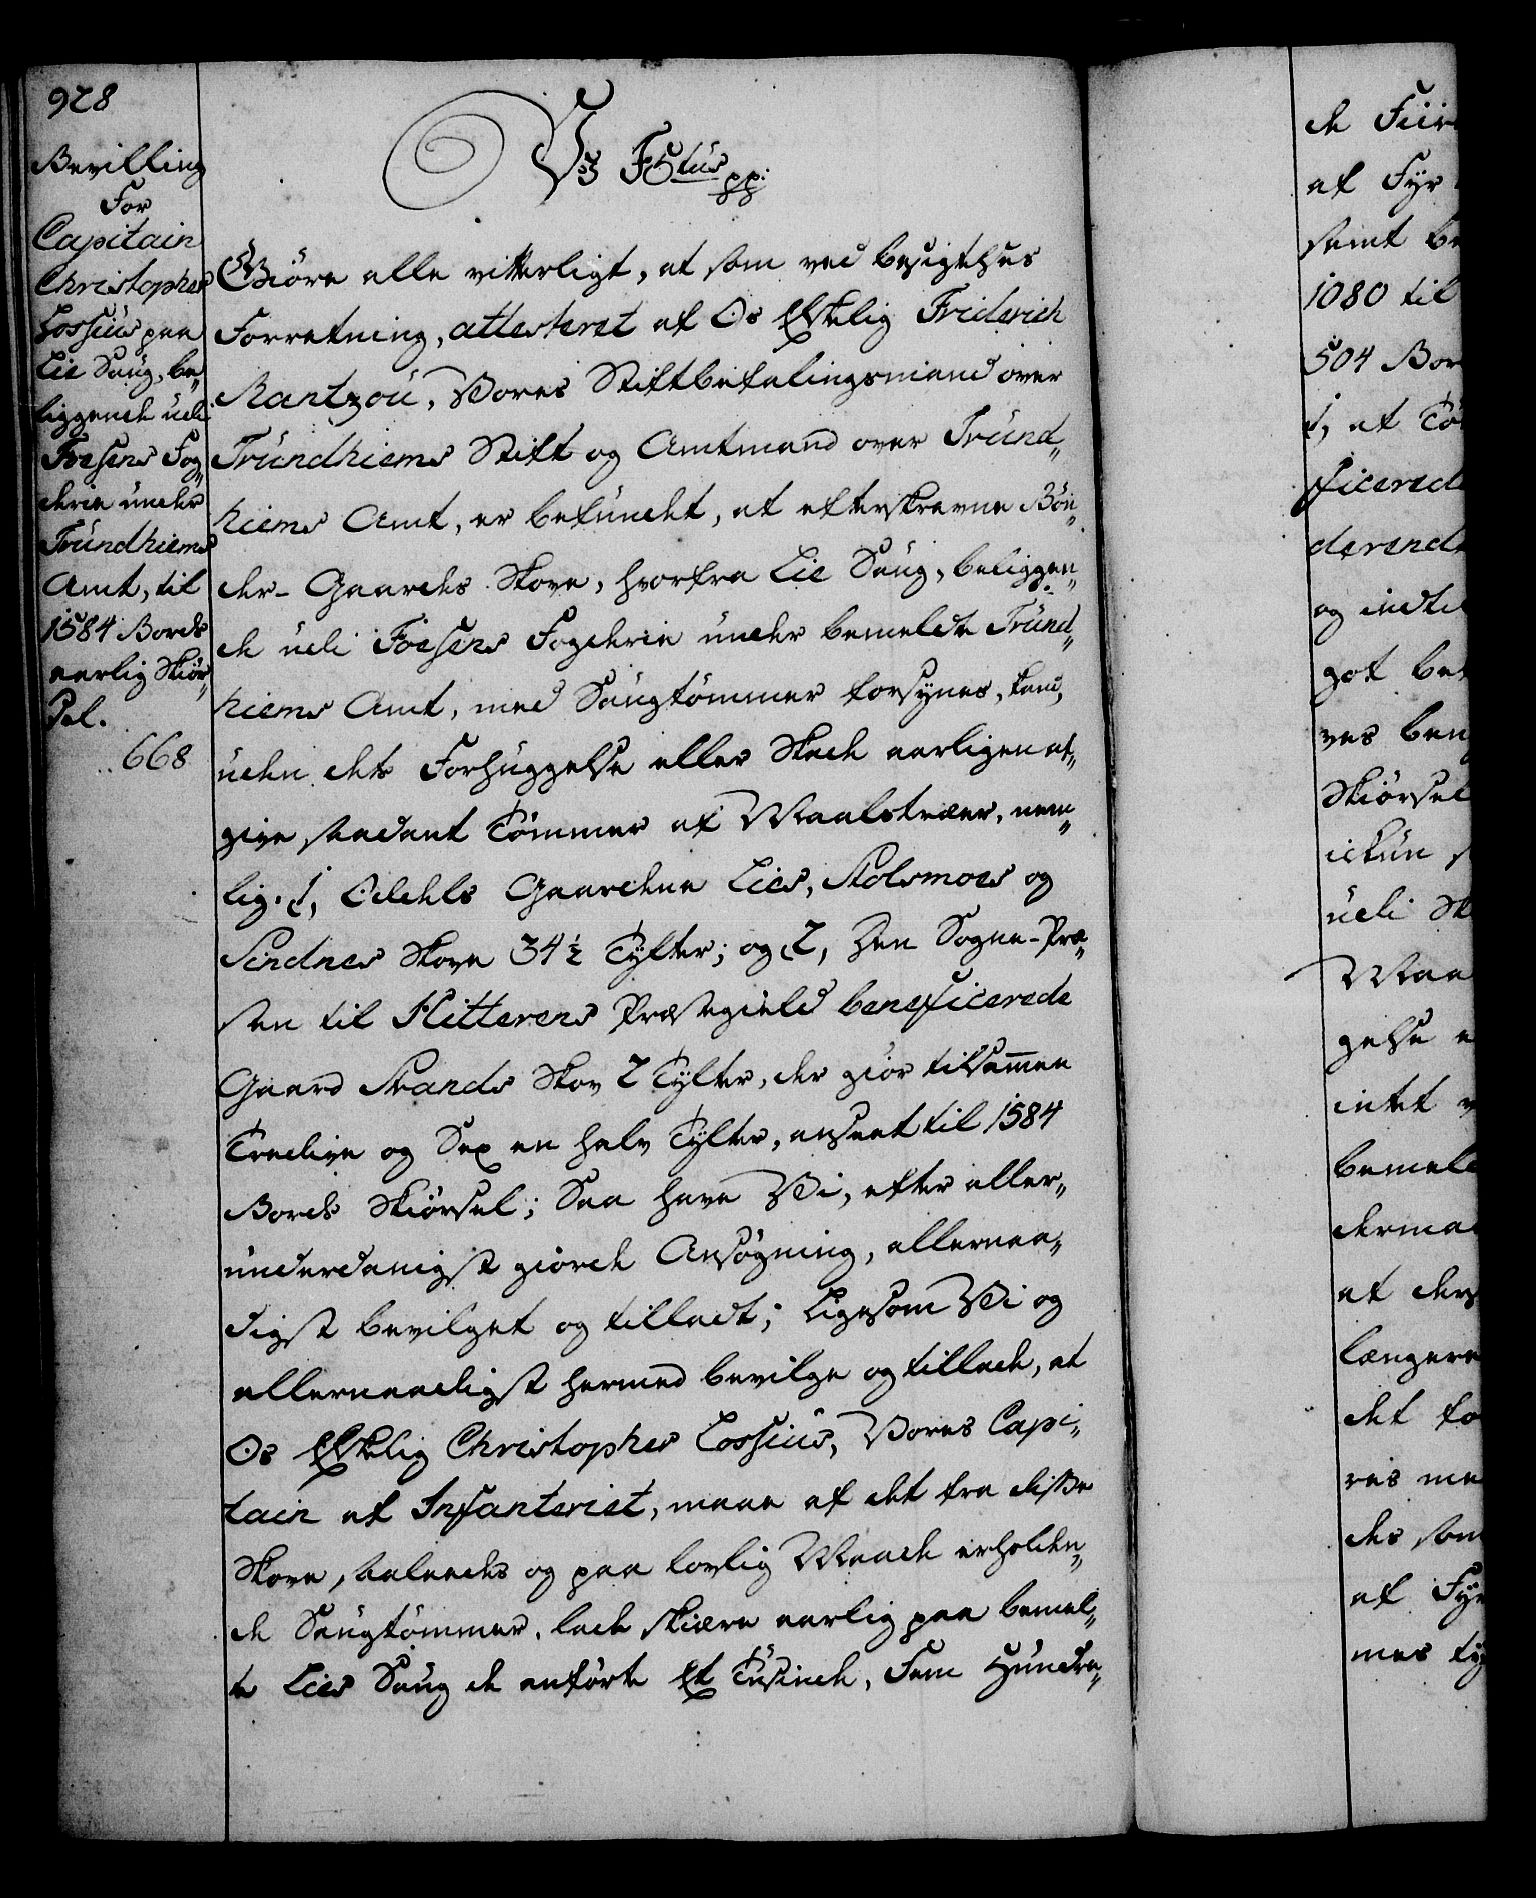 928
Bevilling
For
Capitain
Christopher
Lossius paa
Lie Saug, be„
liggende udi
Foesens Fog„
derie under
Trundhiems
Amt, til
1584 Bords
aarlig Skiør„
Sel.
668
V3 F5tus pp:
Giøre alle vitterligt, at som ved besigtelses
Forretning, attesteret af Os Elskelig Friderich
Rantzou, Vores Stiftbefalingsmand over
Trundhiems Stift og Amtmand over Trund„
hiems Amt, er befundet, at efterskrevne Bøn„
der-Gaardes Skove, hvorfra Lie Saug, beliggen„
de udi Foesens Fogderie under bemeldte Trund„
hiems Amt, med Saugtømmer forsynes, kand,
uden dets Forhuggelse eller Skade aarligen af„
give saadant Tømmer af Maalstræer, nem„
lig. 1, Odels Gaardene Lies, Stolsmoes og
Sindnes Skove 34½ Tylter; og 2, Den Sogne-Præ„
sten til Hitterens Præstegield beneficerede
Gaard Strands Skov 2 Tylter, der giør tilsammen
Tredive og Sex en halv Tylter, anseet til 1584
Bords Skiørsel; Saa have Vi, efter aller„
underdanigst giorde Ansøgning, allernaa„
digst bevilget og tilladt; Ligesom Vi og
allernaadigst hermed bevilge og tillade, at
Os Elskelig Christopher Lossius, Vores Capi„
tain af Infanteriet, maae af det fra disse
Skove, saaledes og paa lovlig Maade erholden„
de Saugtømmer, lade skiære aarlig paa bemel„
te Lies Saug de anførte Et Tusinde, Fem Hundre„
de Fiir
af Fyr
samt be
1080 til
504 Bor
1, at Tø
ficerede
derende
og indtil
got be
ves ben
Skiørsel
ickun s
udi Sk
Maa
gelse e
intet
bemel
derma
at der
længere
det fo
res me
des som
af Fyr
mes